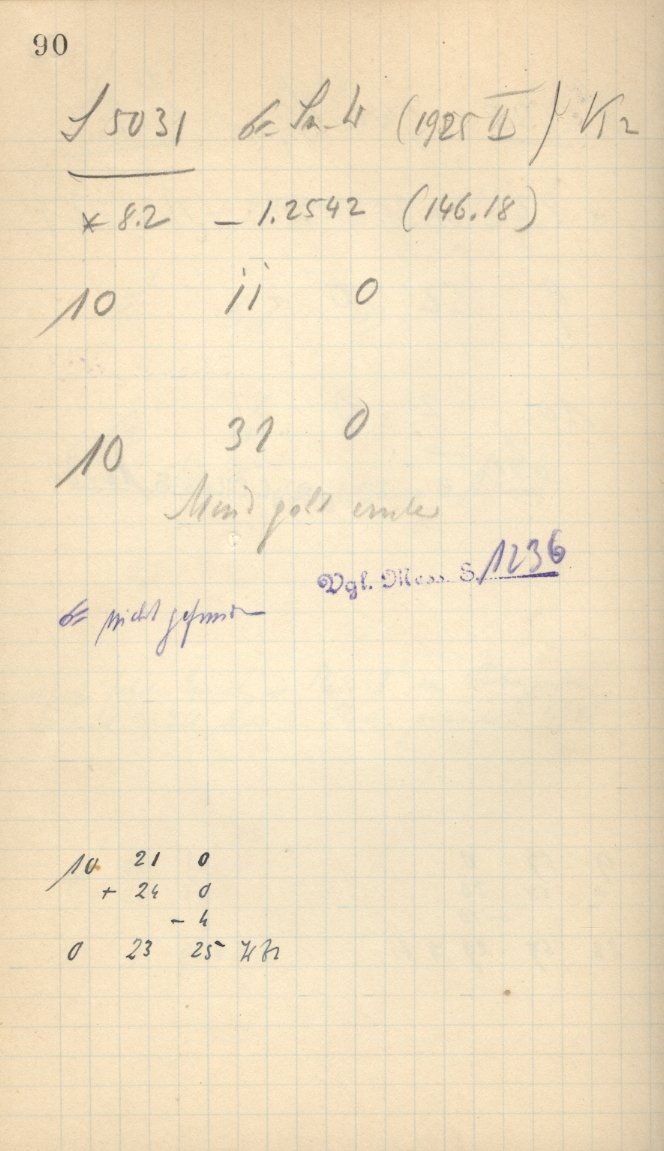 90
S 5031 (1925 II) K2
* 8.2 – 1.2542 (146.18)
10 11 0
10 31 0
Mond
Vgl. Mess S. 1236
nicht gefunden
10 21 0
+ 24 0
– 4
0 23 25